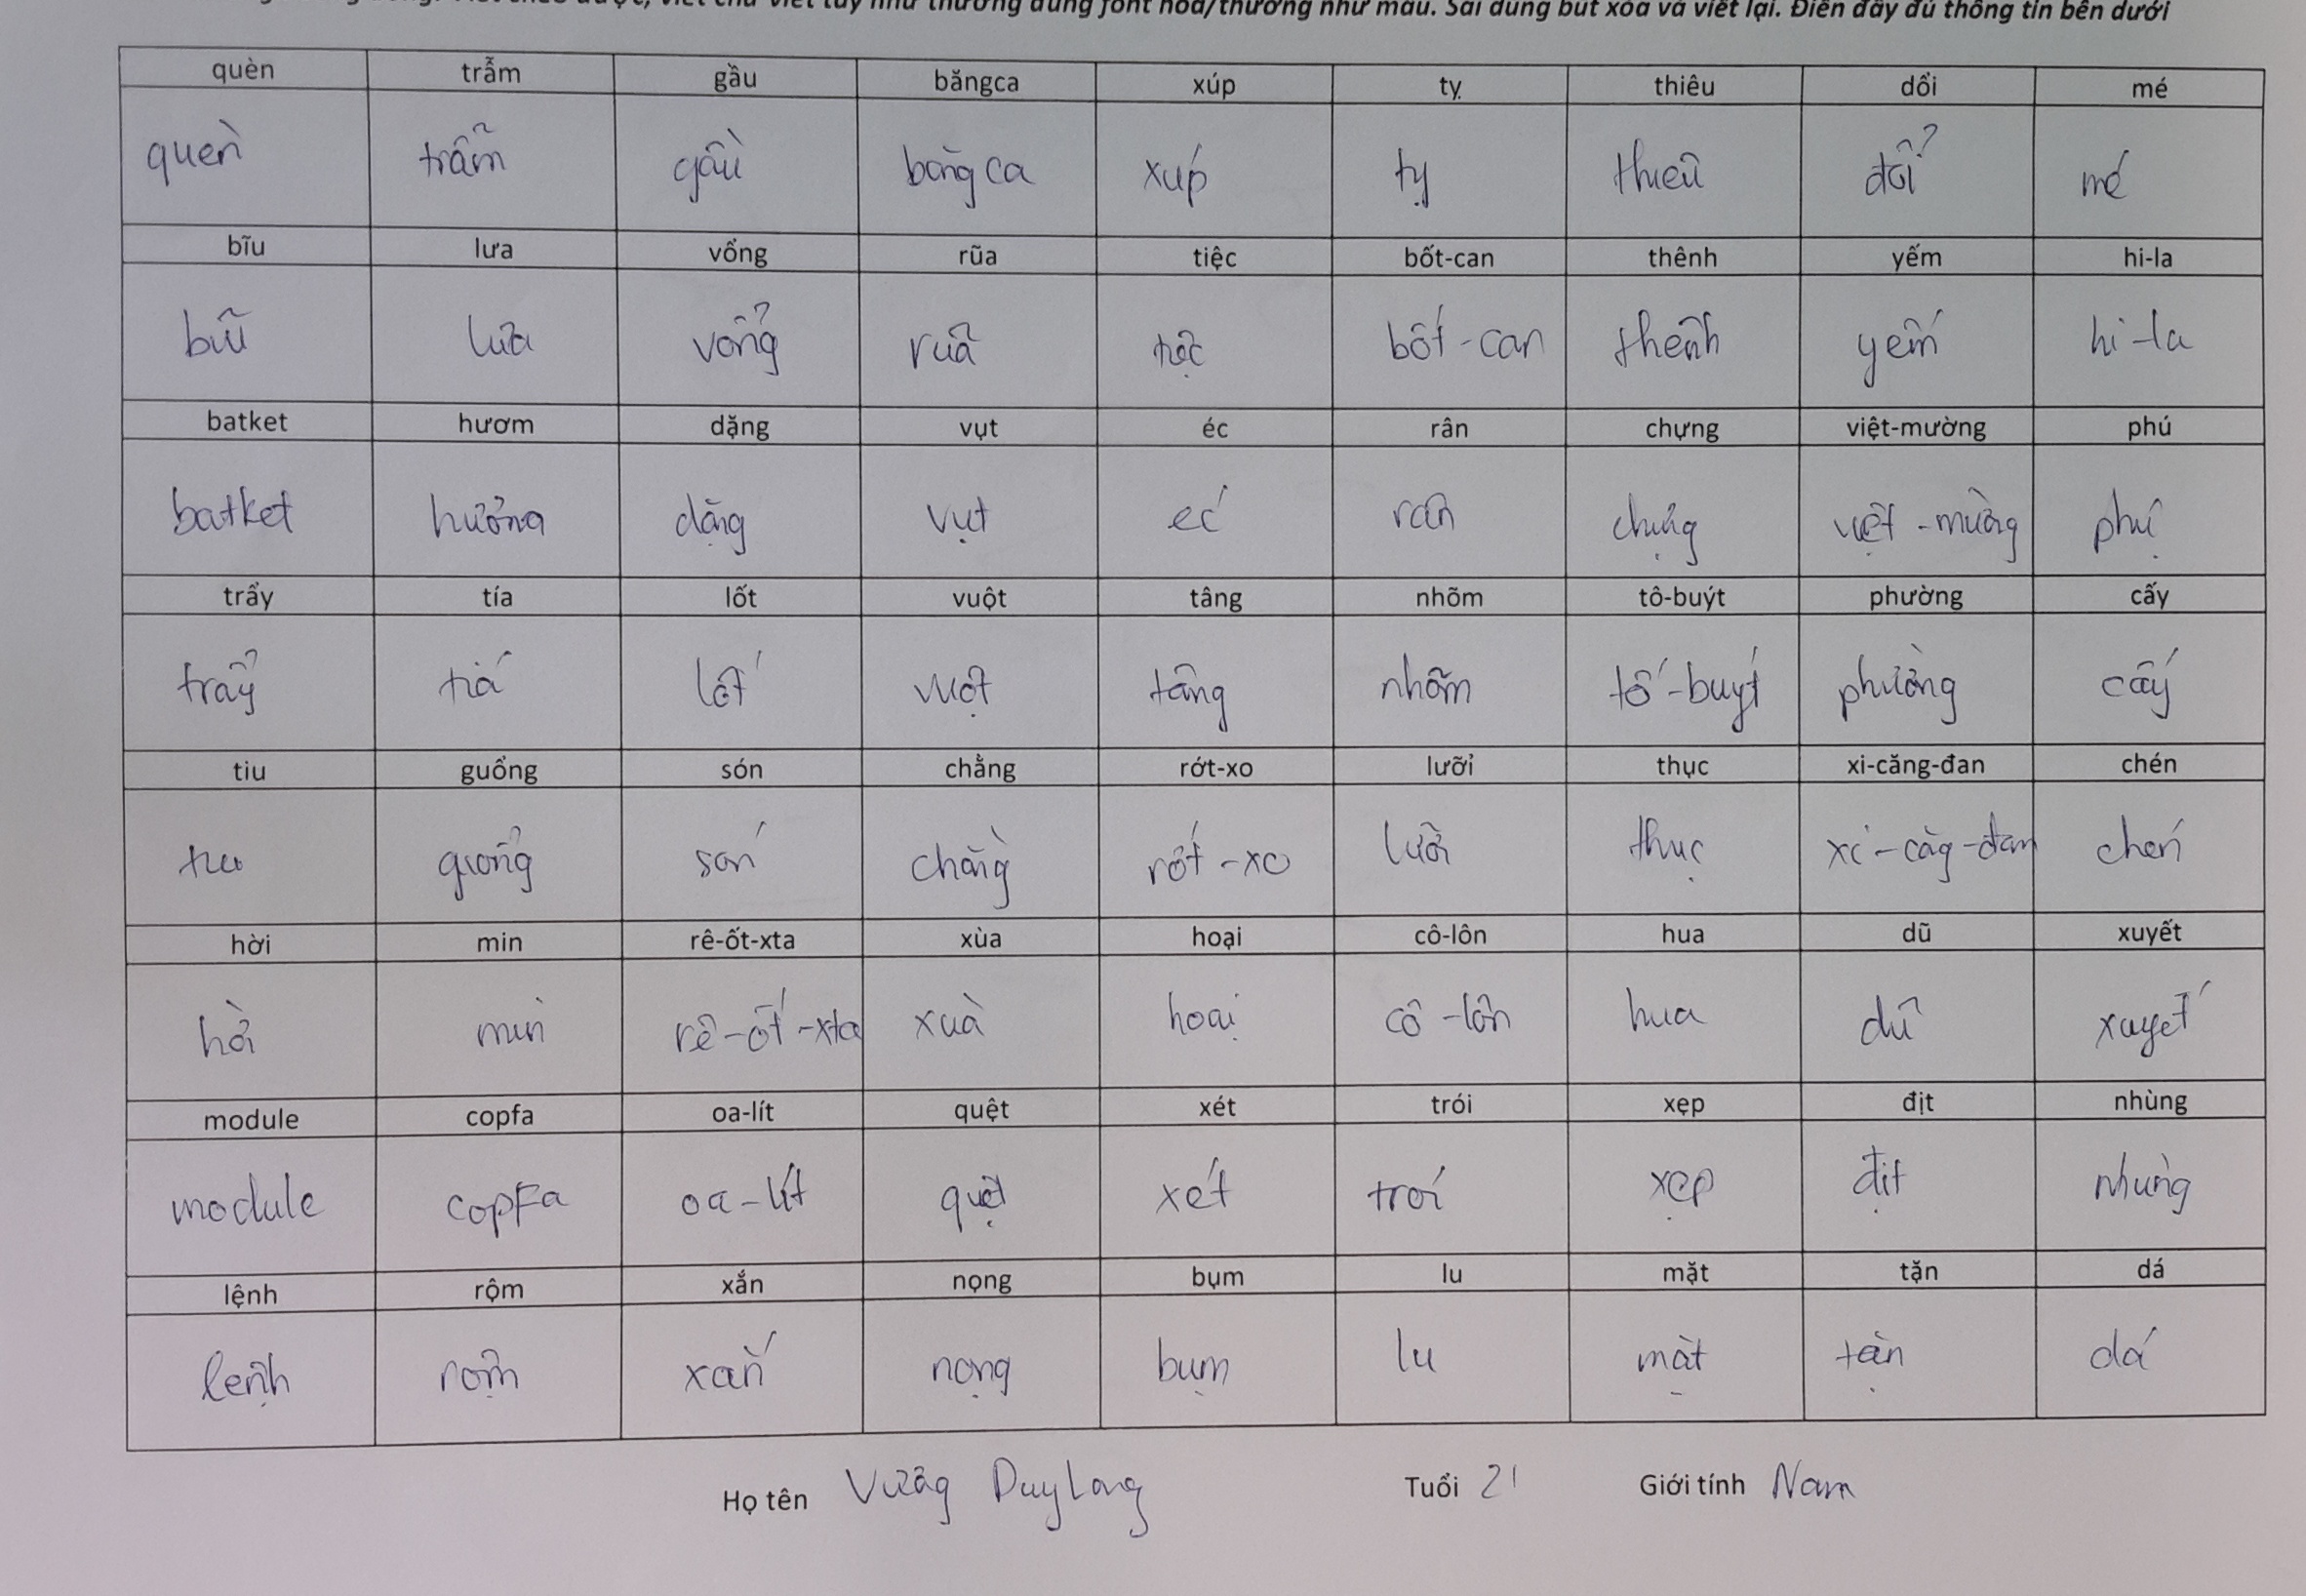 viết chữ viết tay như thường dùng font hoa/thường như mẫu. Sai dùng bút xóa và viết lại. Điền đầy đủ thông tin bên dưới
quèn trẫm gầu băngca xúp tỵ thiêu dổi mé
quèn trẫm gầu băng ca xúp tỵ thiêu đổi mé
bĩu lưa vổng rũa tiệc bốt-can thênh yếm hi-la
bĩu lưa vổng rũa tiệc bốt-can thênh yếm hi-la
batket hươm dặng vụt éc rân chựng việt-mường phú
batket dặng vụt éc rân chựng việt-mường
trẩy tía lốt vuột tâng nhõm tô-buýt phường cấy
trẩy tía lốt vuột tâng nhõm tố-buýt phường cấy
tiu guổng són chằng rớt-xo lưỡi thục xi-căng-đan chén
tiu guổng són chằng rớt-xo lưỡi thục xi-căg-đan chén
hời min rê-ốt-xta xùa hoại cô-lôn hua dũ xuyết
hời min rê-ốt-xta xùa hoại cô-lôn hua dũ xuyết
module copfa oa-lít quệt xét trói xẹp địt nhùng
module copFa oa-lít quệt xét trói xẹp địt nhùng
lệnh rộm xắn nọng bụm lu mặt tặn dá
lệnh rộm xắn nọng bụm lu mặt tặn dá
Họ tên Vương Duy Long Tuổi 21 Giới tính Nam